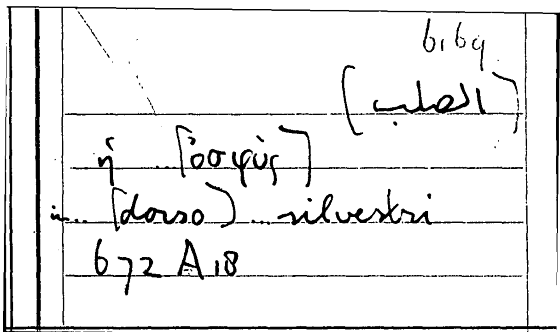 6,69
(الصلب)
ἡ .. [ὀσφύς]
in.. [dorso] ... silvestri
672 A 18